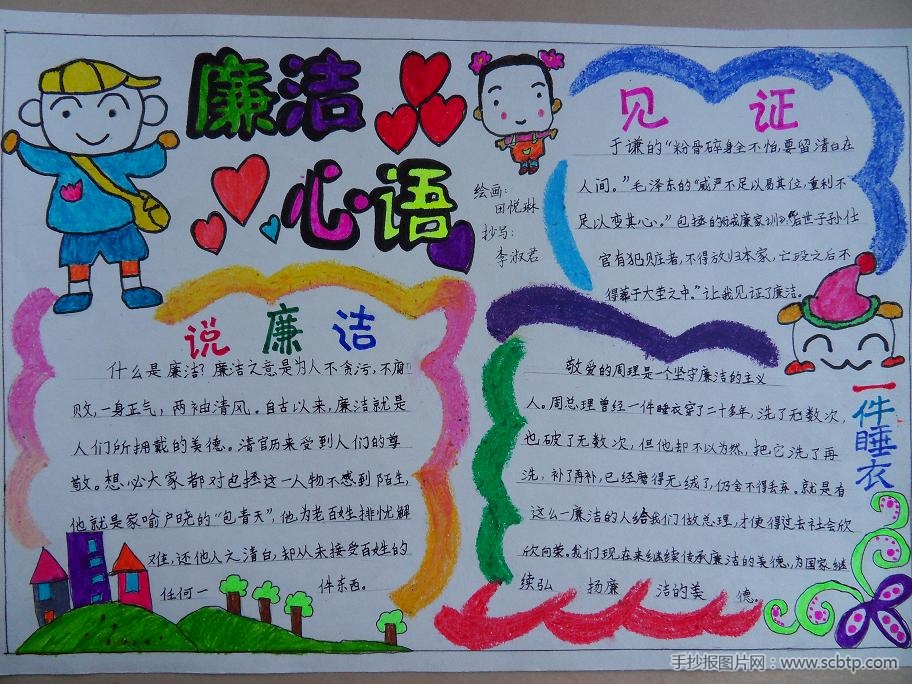 廉洁
心语
绘画:
田悦琳
抄写:
李淑君
见证
于谦的“粉骨碎身全不怕,要留清白在
人间。”毛泽东的“威严不足以易其位,重利不
足以变其心。”包拯的《诫廉家训》“后世子孙仕
官有犯赃者,不得放归本家,亡殁之后不
得葬于大茔之中。”让我见证了廉洁。
说廉洁
什么是廉洁?廉洁之意是为人不贪污,不腐
败,一身正气,两袖清风。自古以来,廉洁就是
人们所拥戴的美德。清官历来受到人们的尊
敬。想必大家都对包拯这一人物不感到陌生,
他就是家喻户晓的“包青天”,他为老百姓排忧解
难,还他人之清白,却从未接受百姓的
任何一件东西。
一件睡衣
敬爱的周理是一个坚守廉洁的主义
人。周总理曾经一件睡衣穿了二十多年,洗了无数次,
也破了无数次,但他却不以为然,把它洗了再
洗,补了再补,已经磨得无绒了,仍舍不得丢弃。就是有
这么一廉洁的人给我们做总理,才使得过去社会欣
欣向荣。我们现在来继续传承廉洁的美德,为国家继
续弘扬廉洁的美德。
手抄报图片网:www.scbtp.com